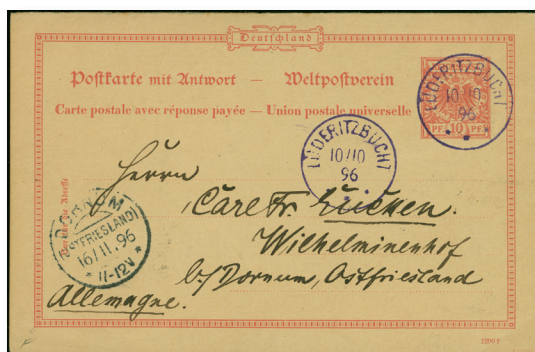 Deutschland
Postkarte mit Antwort — Weltpostverein
Carte postale avec réponse payée — Union postale universelle
PF. 10 PF.
LÜDERITZBUCHT
10/10
96
LÜDERITZBUCHT
10/10
96
Herrn
Carl Fr. Lücken.
Wilhelminenhof
b/ Dornum, Ostfriesland
Allemagne.
DORNUM
(OSTFRIESLAND)
16/11.96
* 11-12V *